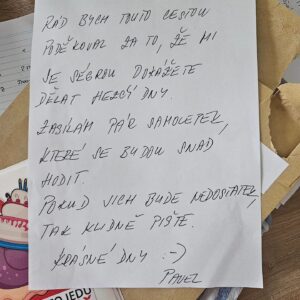 RÁD BYCH TOUTO CESTOU
PODĚKOVAL ZA TO, ŽE MI
SE SÉGROU DOKÁŽETE
DĚLAT HEZČÍ DNY.
ZASÍLÁM PÁR SAMOLETEK,
KTERÉ SE BUDOU SNAD
HODIT.
POKUD JICH BUDE NEDOSTATEK,
TAK KLIDNĚ PIŠTE.
KRÁSNÉ DNY :-)
PAVEL
JEDU